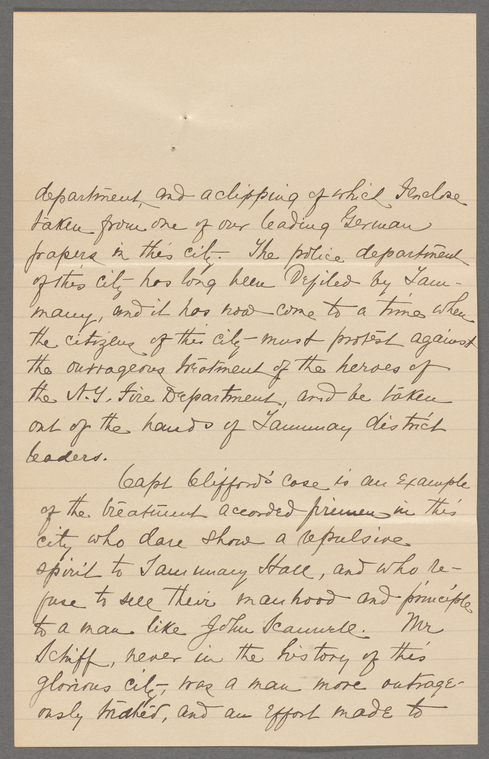 department, and a clipping of which I enclose
taken from one of our leading German
papers in this city. The police department
of this city has long been Defiled by Tam-
many, and it has now come to a time when
the citizens of this city - must protest against
the outrageous treatment of the heroes of
the N.Y. Fire Department, and be taken
out of the hands of Tammay district
leaders.
Capt Clifford's case is an Example
of the treatment accorded firemen in this
city who dare show a repulsive
spirit to Tammany Hall, and who re-
fuse to sell their manhood and principle
to a man like John Scannell. Mr
Schiff, never in the history of this
glorious city, was a man more outrage-
ously treated, and an Effort made to